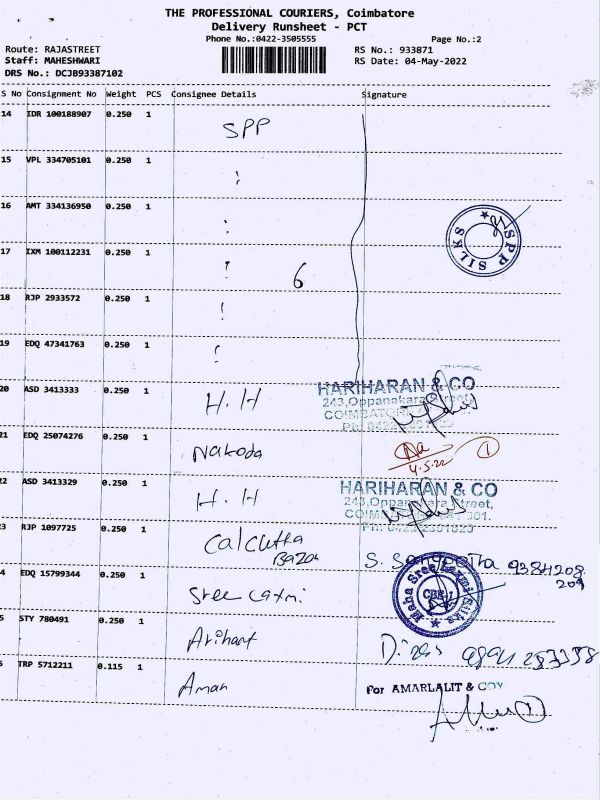 THE PROFESSIONAL COURIERS, Coimbatore
Delivery Runsheet - PCT
Phone No.:0422-3505555
Page No.:2
Route: RAJASTREET
RS No.: 933871
Staff: MAHESHWARI
RS Date: 04-May-2022
DRS No.: DCJB93387102
S No Consignment No Weight PCS Consignee Details Signature
14 IDR 100188907 0.250 1 SPP
15 VPL 334705101 0.250 1
16 AMT 334136950 0.250 1
SPP SILKS
17 IXM 100112231 0.250 1 6
18 RJP 2933572 0.250 1
19 EDQ 47341763 0.250 1
20 ASD 3413333 0.250 1 H.H
HARIHARAN & CO
243,Oppanakara Street,
21 EDQ 25074276 0.250 1 Nakoda
4.5.22 1
22 ASD 3413329 0.250 1 H.H
HARIHARAN & CO
243,Oppanakara Street,
3 RJP 1097725 0.250 1 Calcutta Bazar
S. 9384208
209
4 EDQ 15799344 0.250 1 Sree Laxmi
Maha Sree Laxmi Silks
CBE-1
5 STY 780491 0.250 1 Arihant
6 TRP 5712211 0.115 1 Aman
For AMARLALIT & COY